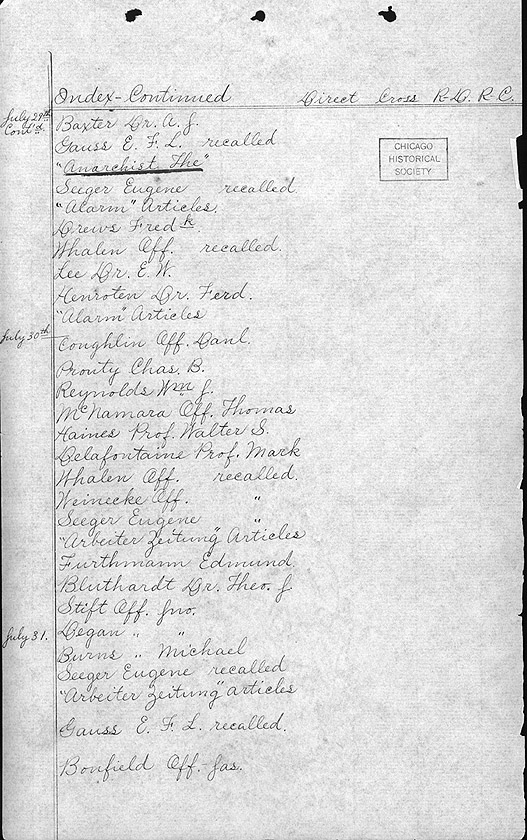 Index-Continued Direct Cross R-D. R-C.
July 29th Cont'd. Baxter Dr. A. J.
Gauss E. F. L. recalled
"Anarchist The"
CHICAGO
HISTORICAL
SOCIETY
Seeger Eugene recalled.
"Alarm" Articles.
Drews Fredk.
Whalen Off. recalled.
Lee Dr. E. W.
Henroten Dr. Ferd.
"Alarm" Articles
July 30th Coughlin Off. Danl.
Prouty Chas. B.
Reynolds Wm J.
McNamara Off. Thomas
Haines Prof. Walter S.
Delafontaine Prof. Mark
Whalen Off. recalled.
Weinecke Off. "
Seeger Eugene "
"Arbeiter Zeitung" Articles
Furthmann Edmund
Bluthardt Dr. Theo. J
Stift Off. Jno.
Degan " "
July 31. Burns " Michael
Seeger Eugene recalled
"Arbeiter Zeitung" articles
Gauss E. F. L. recalled.
Bonfield Off. Jas.